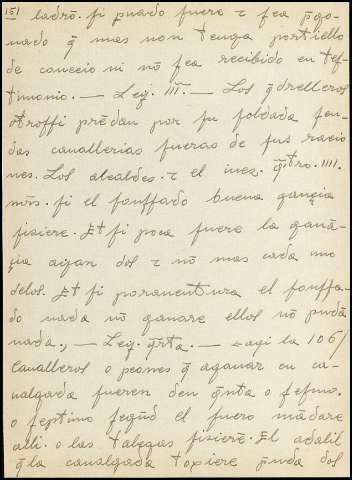 151 ladrō. ſi puado fuere τ ſea p̄go-
nado q̄ mas non tenga portiello
de conceio ni nō ſea recibido en teſ-
timonio. — Ley. III. — Los q̄drelleros
otroſſi prēdan por ſu ſoldada ſen-
das cauallerias fueras de ſus racio
nes. Los alcaldes. τ el iuez. q̄tro. IIII.
mr̄s. ſi el fonſſado buena gançia
fiziere. Et ſi poca fuere la ganā-
çia ayan dos τ nō mas cada uno
delos. Et ſi porauentura el fonſſa-
do nada nō ganare ellos nō prēdā
nada. — Ley. q̄rta. — aqi la 106/
Caualleros o peones q̄ aganar en ca-
ualgada fueren den q̄nta o ſeſmo.
o ſeptimo ſegūd el fuero mādare
alli. o las talegas fizierē. El adalil
q̄ la caualgada τopiere p̄nda dos